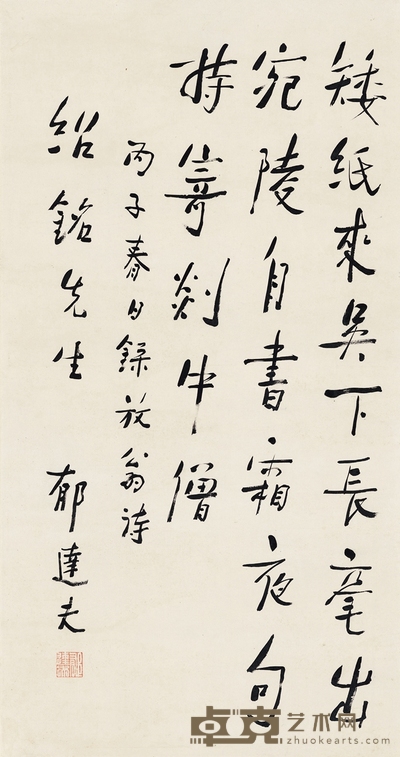 矮紙來吳下長毫出
宛陵自書霜夜句
持寄剡中僧
丙子春日錄放翁詩
紹銘先生 郁達夫
卓克艺术网
zhuokearts.com